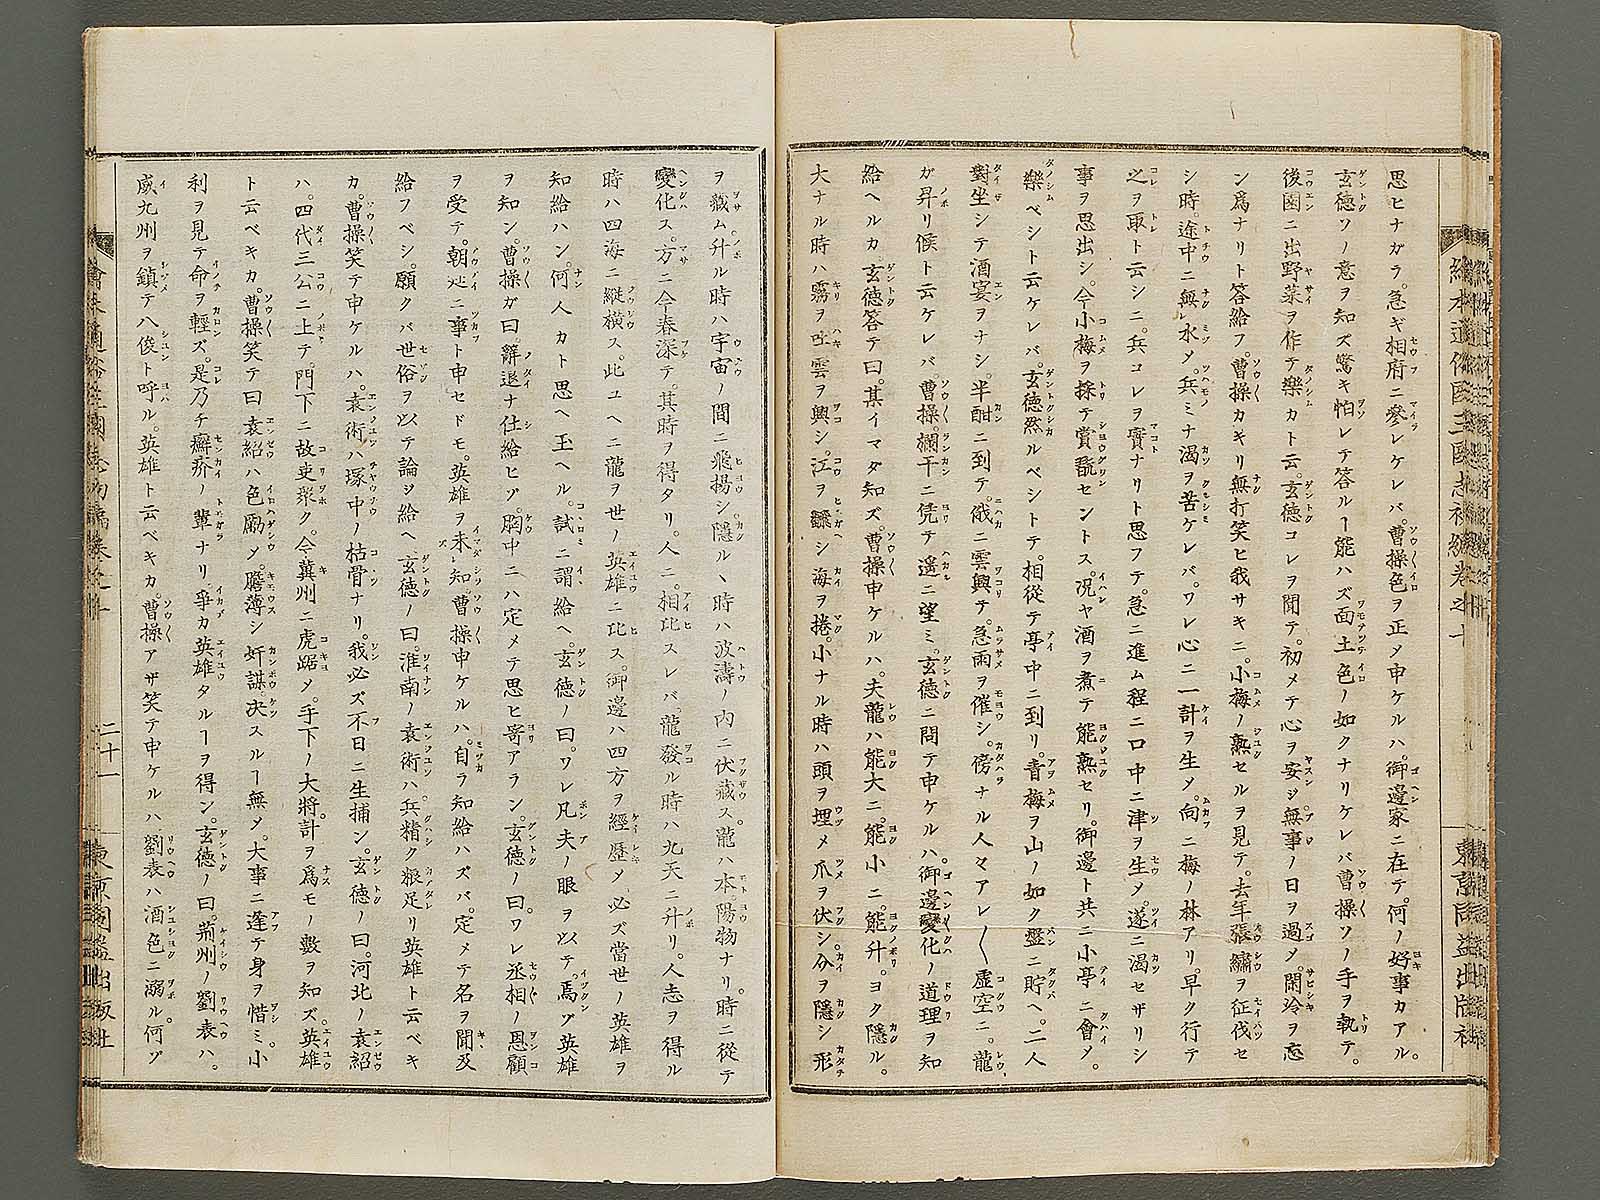 思ヒナガラ。急ギ相府ニ參レケレバ。曹操色ヲ正メ申ケルハ。御邊家ニ在テ。何ノ好事カアル。
玄德ソノ意ヲ知ズ驚キ怕レテ答ルヿ能ハズ面土色ノ如クナリケレバ曹操ソノ手ヲ執テ。
後園ニ出野菜ヲ作テ樂カト云。玄德コレヲ聞テ。初メテ心ヲ安ジ。無事ノ日ヲ過メ。閑冷ヲ忘
ン爲ナリト答給フ。曹操カキリ無打笑ヒ我サキニ。小梅ノ熟セルヲ見テ。去年張繡ヲ征伐セ
シ時。途中ニ無レ水メ。兵ミナ渴ヲ苦ケレバ。ワレ心ニ一計ヲ生メ。向ニ梅ノ林アリ。早ク行テ
之ヲ取ト云シニ。兵コレヲ實ナリト思フテ。急ニ進ム程ニ口中ニ津ヲ生メ。遂ニ渴セザリシ
事ヲ思出シ。今小梅ヲ採テ賞翫セントス。况ヤ酒ヲ煮テ能熟セリ。御邊ト共ニ小亭ニ會メ。
樂ベシト云ケレバ。玄德然ルベシトテ。相從テ亭中ニ到リ。青梅ヲ山ノ如ク盤ニ貯ヘ。二人
對坐シテ酒宴ヲナシ。半酣ニ到テ。俄ニ雲興テ。急雨ヲ催シ。傍ナル人々アレ〳〵虛空ニ。龍
ガ昇リ候ト云ケレバ。曹操。欄干ニ凭テ遙ニ望ミ。玄德ニ問テ申ケルハ。御邊變化ノ道理ヲ知
給ヘルカ玄德答テ曰。某イマダ知ズ。曹操申ケルハ。夫龍ハ能大ニ。能小ニ。能升。ヨク隱ル。
大ナル時ハ霧ヲ吐雲ヲ興シ。江ヲ飜ヘシ海ヲ捲。小ナル時ハ頭ヲ埋メ爪ヲ伏シ。介ヲ隱シ形
ヲ藏ム升ル時ハ宇宙ノ間ニ飛揚シ。隱ルヽ時ハ波濤ノ内ニ伏藏ス。龍ハ本。陽物ナリ。時ニ從テ
變化ス。方ニ今春深テ。其時ヲ得タリ。人ニ。相比スレバ。龍發ル時ハ九天ニ升リ。人志ヲ得ル
時ハ四海ニ縱橫ス。此ユヘニ龍ヲ世ノ英雄ニ比ス。御邊ハ四方ヲ經歷メ必ズ當世ノ英雄ヲ
知給ハン。何人カト思ヘ玉ヘル。試ニ謂給ヘ。玄德ノ曰。ワレ凡夫ノ眼ヲ以テ。焉ゾ英雄
ヲ知ン。曹操ガ曰。辭退ナ仕給ヒゾ。胸中ニハ定メテ思ヒ寄アラン。玄德ノ曰。ワレ丞相ノ恩顧
ヲ受テ。朝廷ニ事ト申セドモ。英雄ヲ未レ知。曹操申ケルハ。自ヲ知給ハズバ。定メテ名ヲ聞及
給フベシ。願クバ世俗ヲ以テ論ジ給ヘ玄德ノ曰。淮南ノ袁術ハ。兵精ク粮足リ英雄ト云ベキ
カ。曹操笑テ申ケルハ。袁術ハ塚中ノ枯骨ナリ。我必ズ不日ニ生捕ン。玄德ノ曰。河北ノ袁紹
ハ。四代三公ニ上テ。門下ニ故吏衆ク。今冀州ニ虎踞メ。手下ノ大將計ヲ爲モノ數ヲ知ズ。英雄
ト云ベキカ。曹操笑テ曰袁紹ハ色勵メ。膽薄シ奸謀。决スルヿ無メ。大事ニ逢テ身ヲ惜ミ。小
利ヲ見テ命ヲ輕ズ。是乃チ癬疥ノ輩ナリ爭カ英雄タルヿヲ得ン。玄德ノ曰。荊州ノ劉表ハ。
威九州ヲ鎮テ八俊ト呼ル。英雄ト云ベキカ。曹操アザ笑テ申ケルハ劉表ハ酒色ニ溺ル何ゾ
二十一